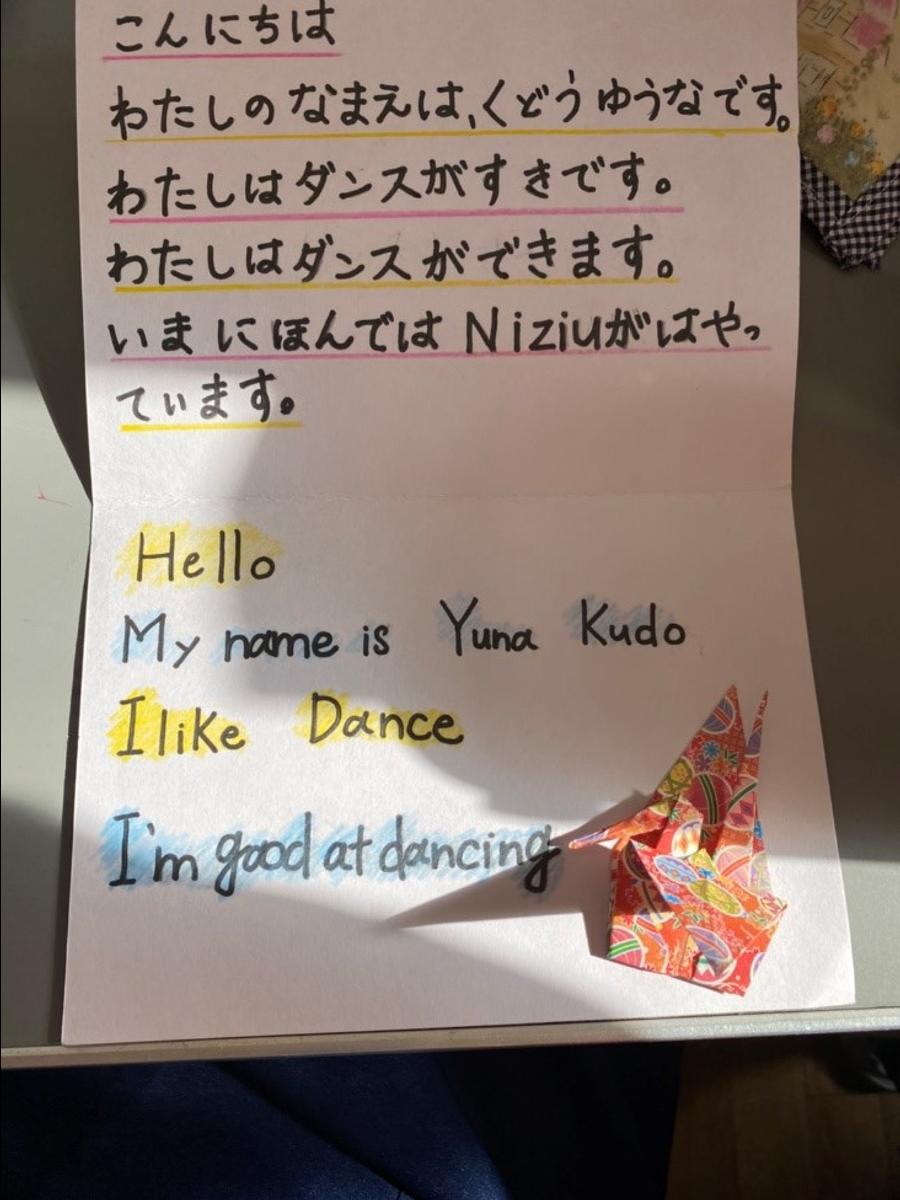 こんにちは
わたしの なまえは、くどう ゆうなです。
わたしはダンスがすきです。
わたしはダンスができます。
いま にほんでは Niziuがはやっ
ています。
Hello
My name is Yuna Kudo
I like Dance
I'm good at dancing